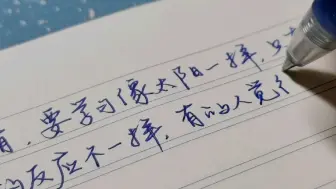 有，要学习像太阳一样，只
的反应不一样，有的人觉